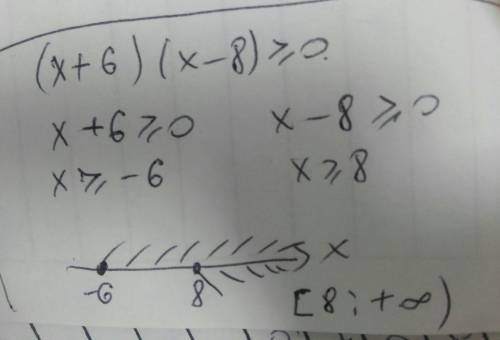 (x+6)(x-8)≥0.
x+6≥0 x-8≥0
x≥-6 x≥8
x
-6 8 [8;+∞)